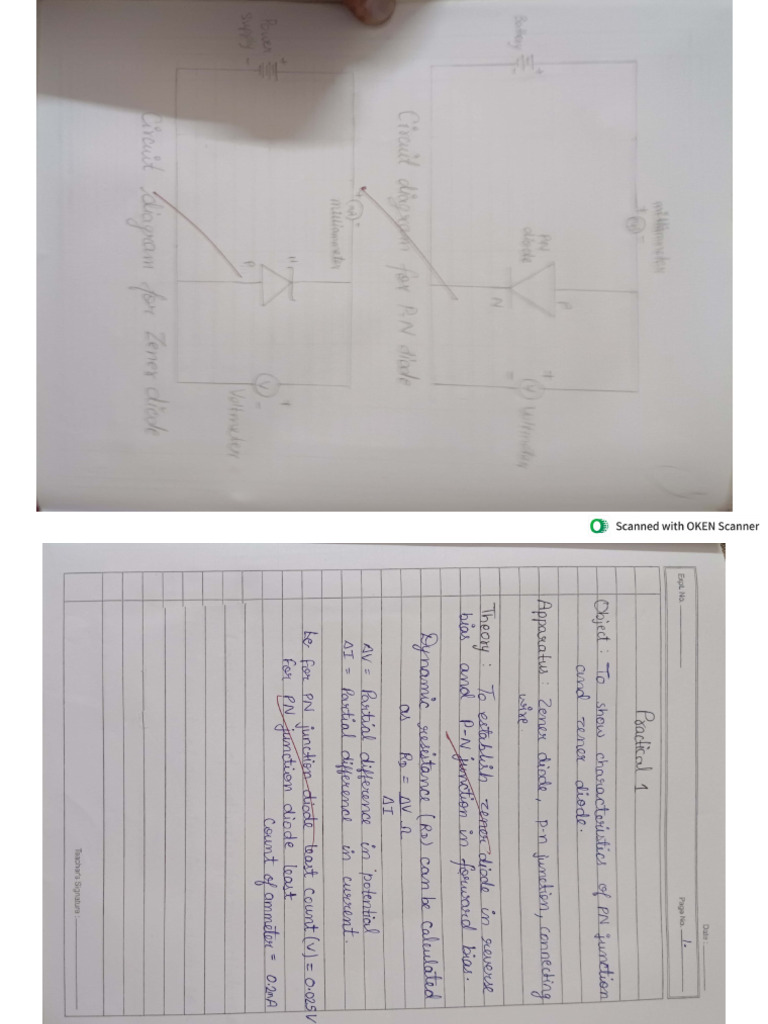 Battery
+
-
milliammeter
+ (mA) -
PN
diode
P
N
+
(V) Voltmeter
=
Circuit diagram for P.N diode
Power
supply
+
-
+ (mA) -
milliammeter
N
P
+
(V)
-
Voltmeter
Circuit diagram for Zener diode
Scanned with OKEN Scanner
Date
Expt. No.
Page No. 1.
Practical 1
Object : To show characteristics of PN junction
and zener diode.
Apparatus : Zener diode, p-n junction, connecting
wire
Theory : To establish zener diode in reverse
bias and P-N junction in forward bias.
Dynamic resistance (RD) can be calculated
as RD = ΔV Ω
ΔI
ΔV = Partial difference in potential
ΔI = Partial difference in current.
be for PN junction diode least count (V) = 0.025V
for PN junction diode least
count of ammeter = 0.2mA
Teacher's Signature